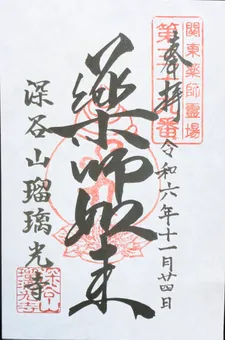 奉拝
関東薬師霊場
第二十九番
令和六年十一月廿四日
薬師如来
深谷山瑠璃光寺
深谷山
瑠璃光寺